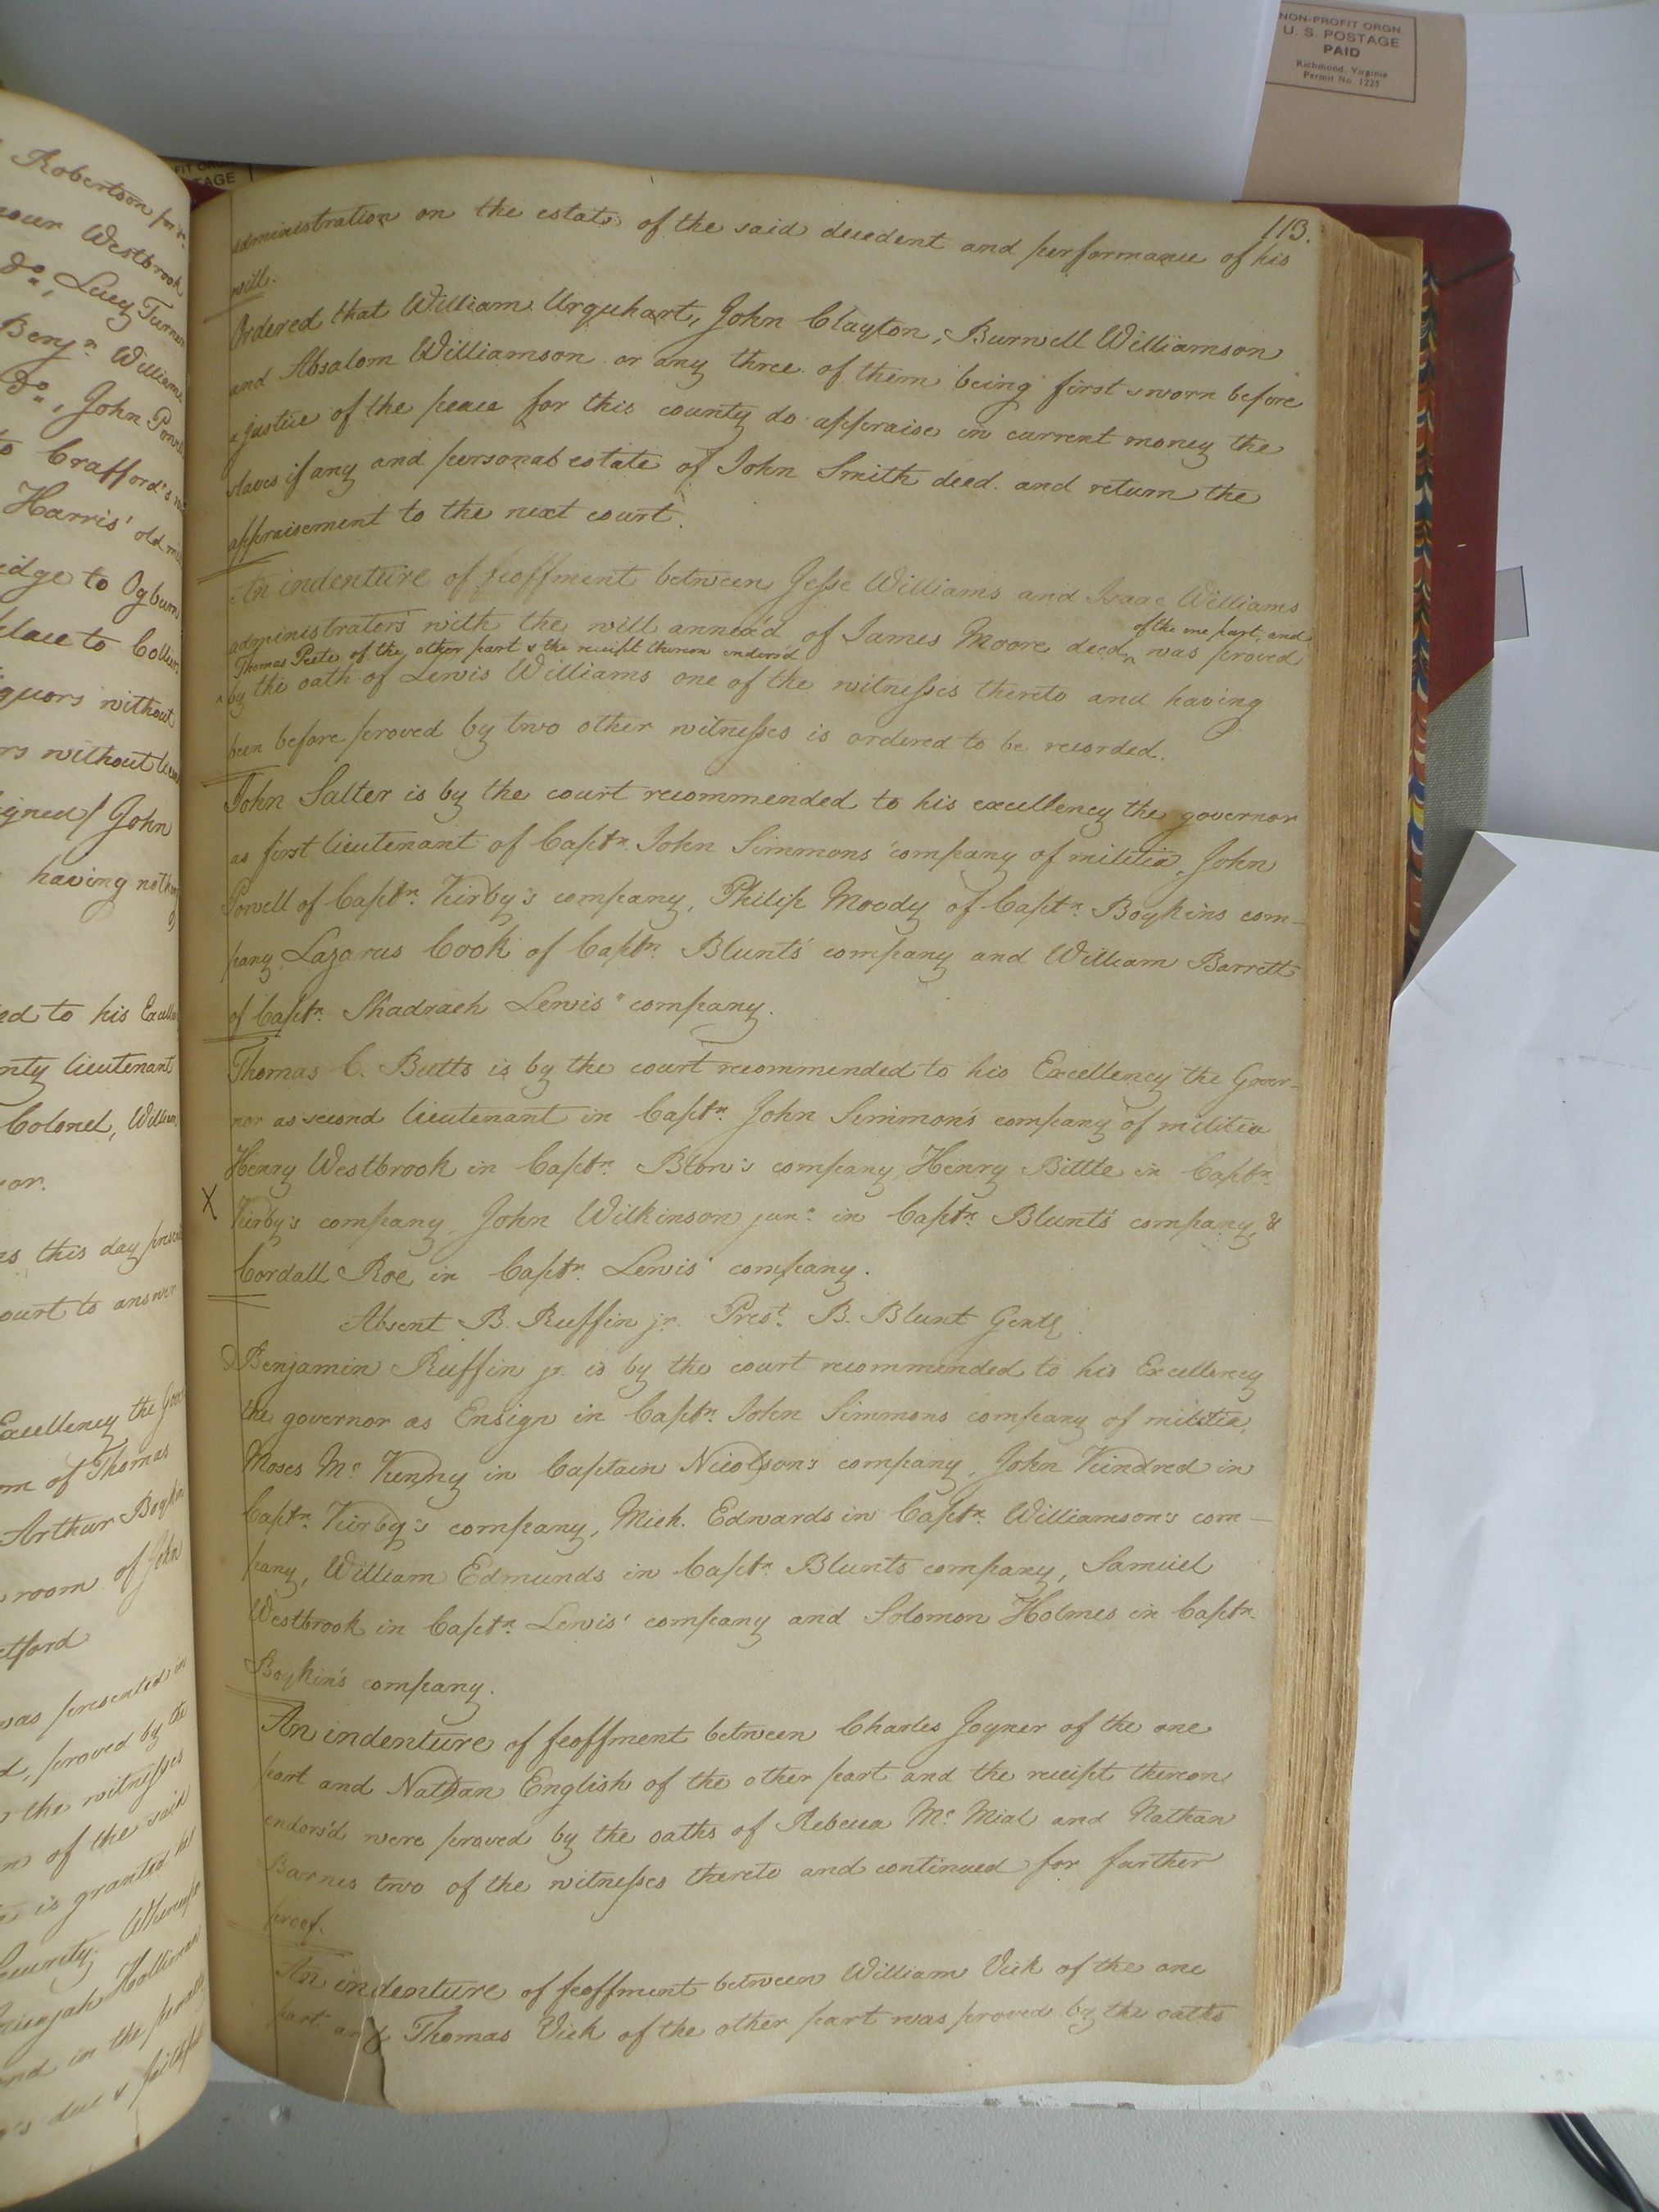 NON-PROFIT ORGN.
U. S. POSTAGE
PAID
Richmond, Virginia
Permit No. 1225
113.
administration on the estate of the said decedent and performance of his
will.
Ordered that William Urquhart, John Clayton, Burwell Williamson
and Absalom Williamson or any three of them being first sworn before
a justice of the peace for this county do appraise in current money the
slaves if any and personal estate of John Smith deed. and return the
appraisement to the next court.
An indenture of feoffment between Jesse Williams and Isaac Williams
of the one part, and
administrators with the will annex'd of James Moore deed ^ was proved
Thomas Peete of the other part & the receipt thereon endors'd
^ by the oath of Lewis Williams one of the witnesses thereto and having
been before proved by two other witnesses is ordered to be recorded.
John Salter is by the court recommended to his excellency the governor
as first lieutenant of Captn. John Simmons' company of militia, John
Powell of Captn. Kirby's company, Philip Moody of Captn. Boykins com-
pany, Lazarus Cook of Captn. Blunts' company and William Barrett
of Captn. Shadrach Lewis' company.
Thomas C. Butts is by the court recommended to his Excellency the Gover-
nor as second lieutenant in Captn. John Simmon's company of militia
Henry Westbrook in Captn. Blow's company, Henry Bittle in Captn.
X Kirby's company, John Wilkinson junr. in Captn. Blunts' company, &
Cordall Roe in Captn. Lewis' company.
Absent B. Ruffin jr. Prest. B. Blunt Gentl.
Benjamin Ruffin jr. is by the court recommended to his Excellency
the governor as Ensign in Captn. John Simmons company of militia,
Moses Mc. Kenny in Captain Nicolson's company, John Kindred in
Captn. Kirby's company, Mich. Edwards in Captn. Williamson's com-
pany, William Edmunds in Captn. Blunts company, Samuel
Westbrook in Captn. Lewis' company and Solomon Holmes in Captn.
Boykin's company.
An indenture of feoffment between Charles Joyner of the one
part and Nathan English of the other part and the receipt thereon
endors'd were proved by the oaths of Rebecca Mc. Mial and Nathan
Barnes two of the witnesses thereto and continued for further
proof.
An indenture of feoffment between William Vick of the one
part and Thomas Vick of the other part was proved by the oaths
Robertson for
Westbrook
do., Lucy Turner
Benjn. Williams
do., John
to Crafford's
Harris' old
to Ogburns
to
without
without
John
having
to his
lieutenant
Colonel,
this day
court to answer
Excellency the
of Thomas
Arthur Boykin
room of John
was presented in
proved by the
the witnesses
of the said
is granted
and in the
due &